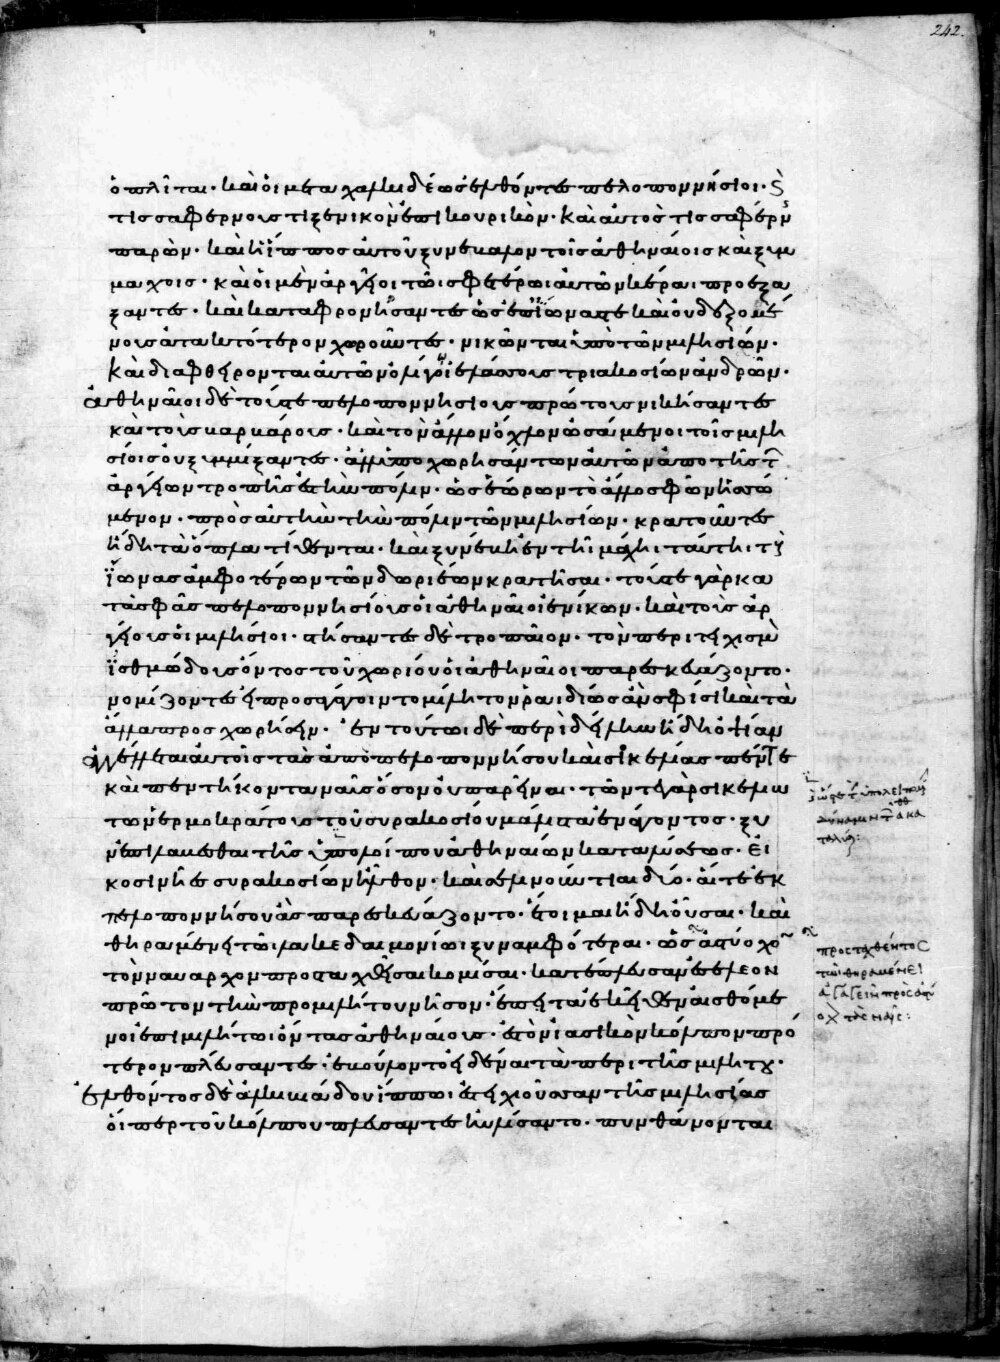 ὁπλῖται· καὶ οἱ μετὰ χαλκιδέως ἐλθόντες πελοποννήσιοι· καὶ
τισσαφέρνους τι ξενικὸν ἐπικουρικόν· καὶ αὐτὸς τισσαφέρνης
παρὼν· καὶ ἡ ἵππος αὐτοῦ ξυνέβαλον τοῖς ἀθηναίοις καὶ ξυμ
μάχοις· καὶ οἱ μὲν ἀργεῖοι τῶι σφετέρωι αὐτῶν κέραι προεξά
ξαντες· καὶ καταφρονήσαντες ὡς ἐπ' ἴωνάς τε καὶ οὐ δεξομέ
νους ἀτακτότερον χωροῦντες· νικῶνται ὑπὸ τῶν μιλησίων·
καὶ διαφθείρονται αὐτῶν ὀλίγωι ἐλάσσους τριακοσίων ἀνδρῶν·
ἀθηναῖοι δὲ τούς τε πελοποννησίους πρώτους νικήσαντες
καὶ τοὺς βαρβάρους· καὶ τὸν ἄλλον ὄχλον ὠσάμενοι τοῖς μιλη
σίοις οὐ ξυμμίξαντες· ἀλλ' ὑποχωρησάντων αὐτῶν ἀπὸ τῆς τῶν
ἀργείων τροπῆς ἐς τὴν πόλιν· ὡς ἑώρων τὸ ἄλλο σφῶν ἡσσώ
μενον· πρὸς αὐτὴν τὴν πόλιν τῶν μιλησίων· κρατοῦντες
ἤδη τὰ ὅπλα τίθενται· καὶ ξυνέβη ἐν τῆι μάχηι ταύτηι τοὺς
ἴωνας ἀμφοτέρων τῶν δωριέων κρατῆσαι· τούς τε γὰρ κα
τὰ σφᾶς πελοποννησίους οἱ ἀθηναῖοι ἐνίκων· καὶ τοὺς ἀρ
γείους οἱ μιλήσιοι· στήσαντες δὲ τροπαῖον· τὸν περιτειχισμὸν
ἰσθμώδους ὄντος τοῦ χωρίου οἱ ἀθηναῖοι παρεσκευάζοντο·
νομίζοντες εἰ προσαγάγοιντο μίλητον ῥαιδίως ἂν σφίσι καὶ τὰ
ἄλλα προσχωρήσειν· ἐν τούτωι δὲ περὶ δείλην ἤδη ὀψίαν
ἀγγέλλεται αὐτοῖς τὰς ἀπὸ πελοποννήσου καὶ σικελίας πέντε
καὶ πεντήκοντα ναῦς ὅσον οὐ παρεῖναι· τῶν τε γὰρ σικελιω
τῶν ἑρμοκράτους τοῦ συρακοσίου μάλιστα ἐνάγοντος· ξυ
νεπιλαβέσθαι τῆς ὑπολοίπου ἀθηναίων καταλύσεως· εἴ
κοσι νῆες συρακοσίων ἦλθον· καὶ σελινούντιαι δύο· αἵ τε ἐκ
πελοποννήσου ἃς παρεσκευάζοντο· ἑτοῖμαι ἤδη οὖσαι· καὶ
θηραμένει τῶι λακεδαιμονίωι ξυναμφότεραι· ὡς ἀστύοχον
τὸν ναύαρχον προσταχθεῖσαι κομίσαι· κατέπλευσαν ἐς ἔλεον
πρῶτον τὴν πρὸ μιλήτου νῆσον· ἔπειτα ἐκεῖθεν αἰσθόμε
νοι ἐπὶ μιλήτωι ὄντας ἀθηναίους· ἐς τὸν ἰασικὸν κόλπον πρό
τερον πλεύσαντες· ἐβούλοντο εἰδέναι τὰ περὶ τῆς μιλήτου·
ἐλθόντος δὲ ἀλκιβιάδου ἵππωι ἐς τειχιοῦσσαν τῆς μιλησίας
οἷπερ τοῦ κόλπου πλεύσαντες ηὐλίσαντο· πυνθάνονται
προσταχθέντος
τῶι θηραμένει
ἀγαγεῖν πρὸς ἀστύ
οχον τὰς ναῦς:
242.